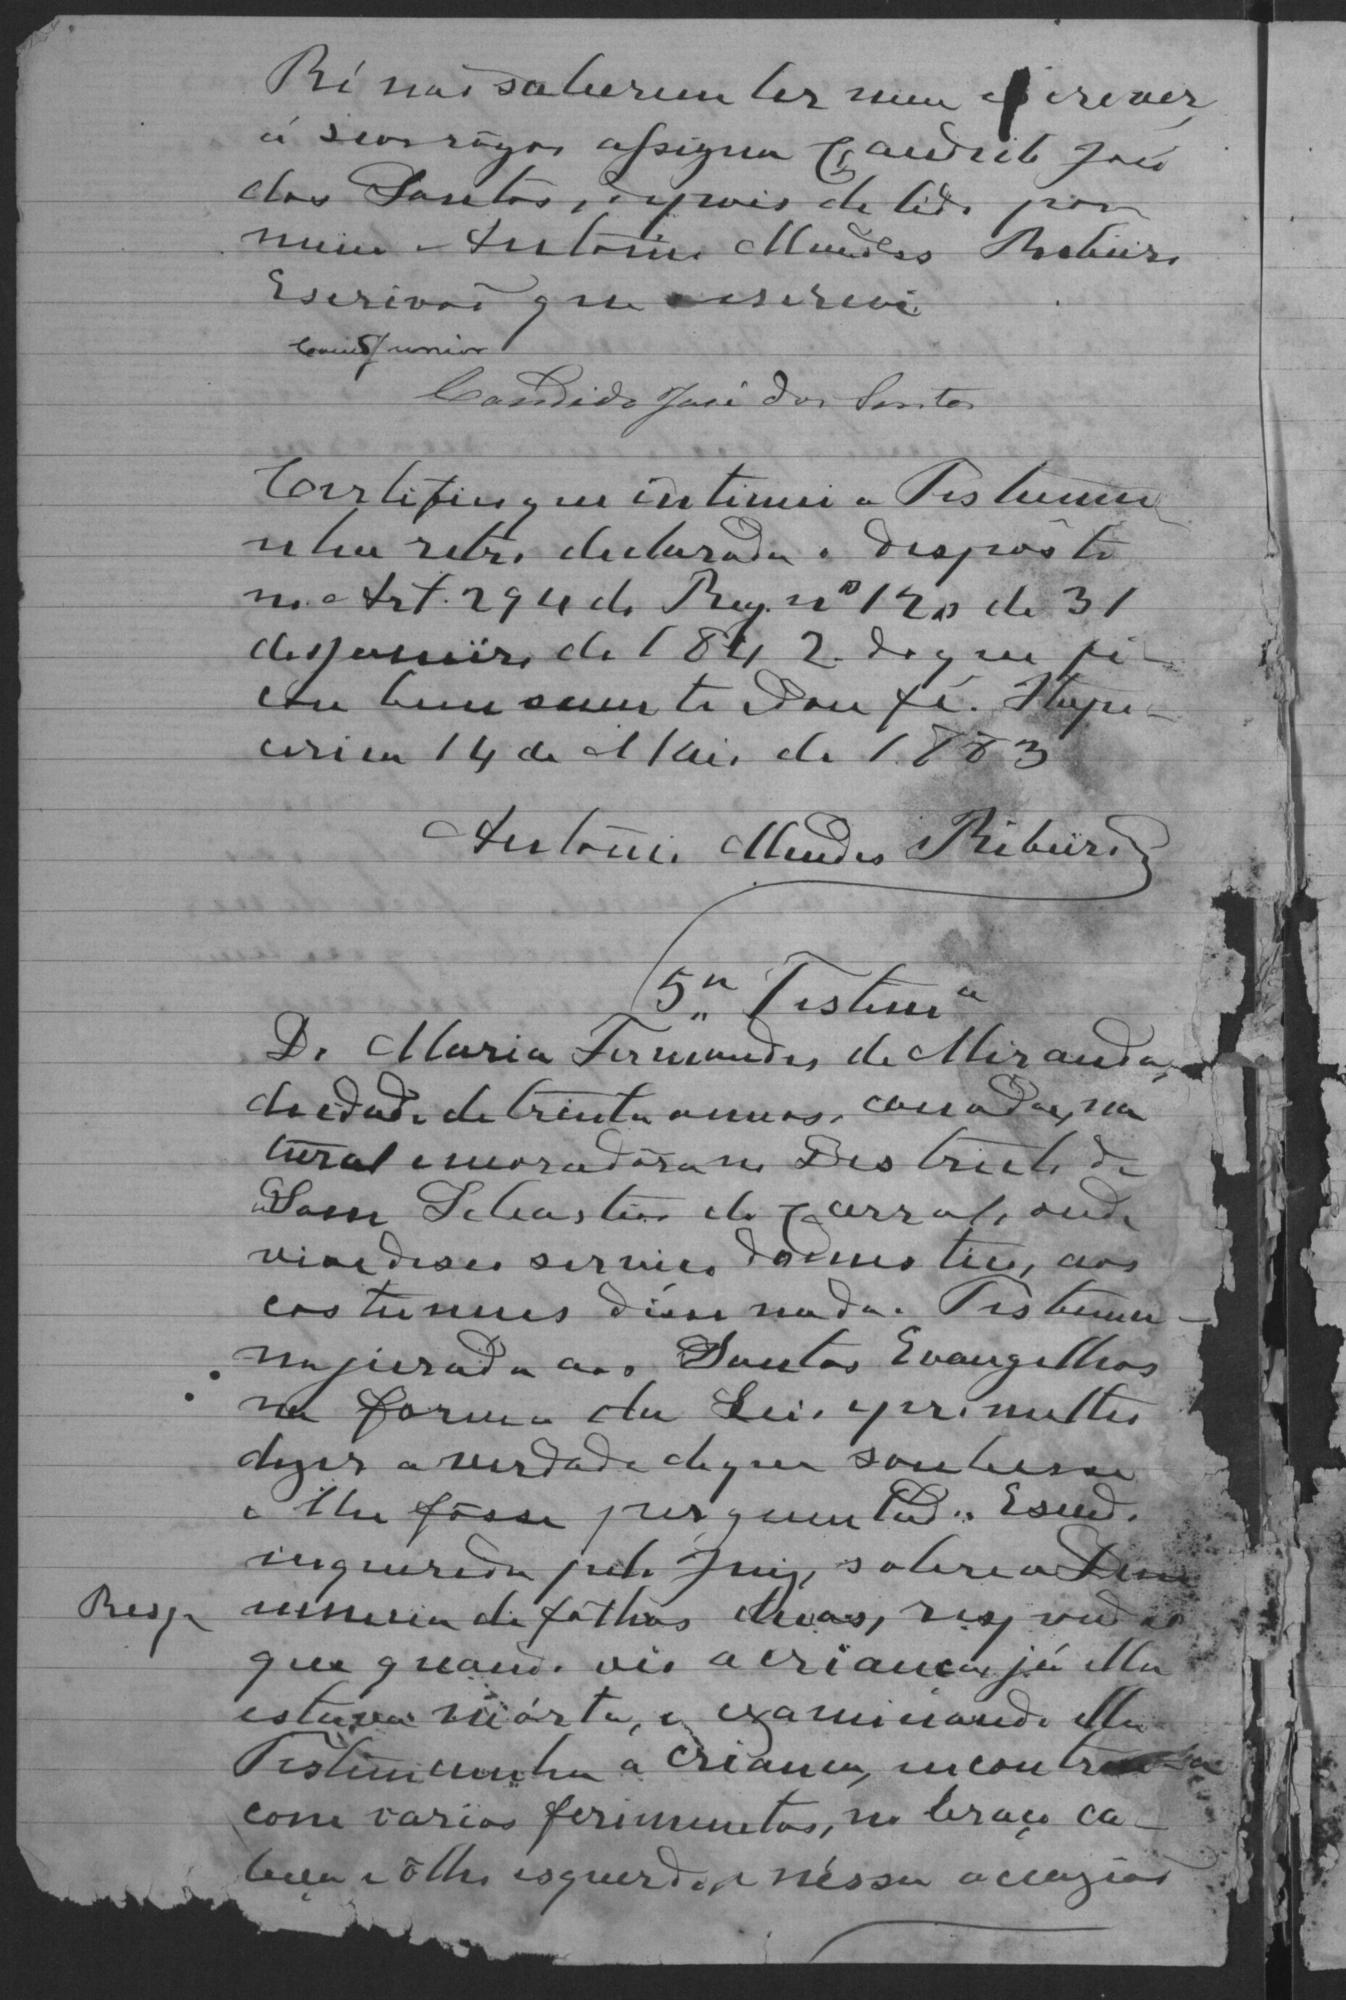 Ré não saberem ler nem escrever,
á seos rógos assigna Candido José
dos Santos, depois de lido por
mim Antonio Mendes Ribeiro
Escrivaõ que escrevi
Candido José dos Santos
Certifico que intimei a Testemu-
nha retro declarada o disposto
no Art. 294 do Reg. nº 120 de 31
de Janeiro de 1842 do que fi-
cou bem sciente Dou fé. Itape-
cerica 14 de Maio de 1883
Antonio Mendes Ribeiro
5ª Testemª
D. Maria Fernandes de Miranda,
de idade de trinta annos, casada, na
tural e moradôra no Districto de
Sam Sebastião do Curral, onde
vive de seo serviço domestico, aos
costumes disse nada. Testemu-
nha jurada aos Santos Evangelhos
na forma da Lei, e prometteo
dizer a verdade do que soubesse
e lhe fôsse perguntado. E sendo
inquerida pelo Juiz, sobre a Den
nuncia de fôlhas duas, respondeo
Resp.
que quando vio a criança, já ella
estava mórta, e examinando ella
Testemunha a criança, encontrou-a
com varios ferimentos, no braço ca-
beça e ôlho esquerdo, e néssa occazião